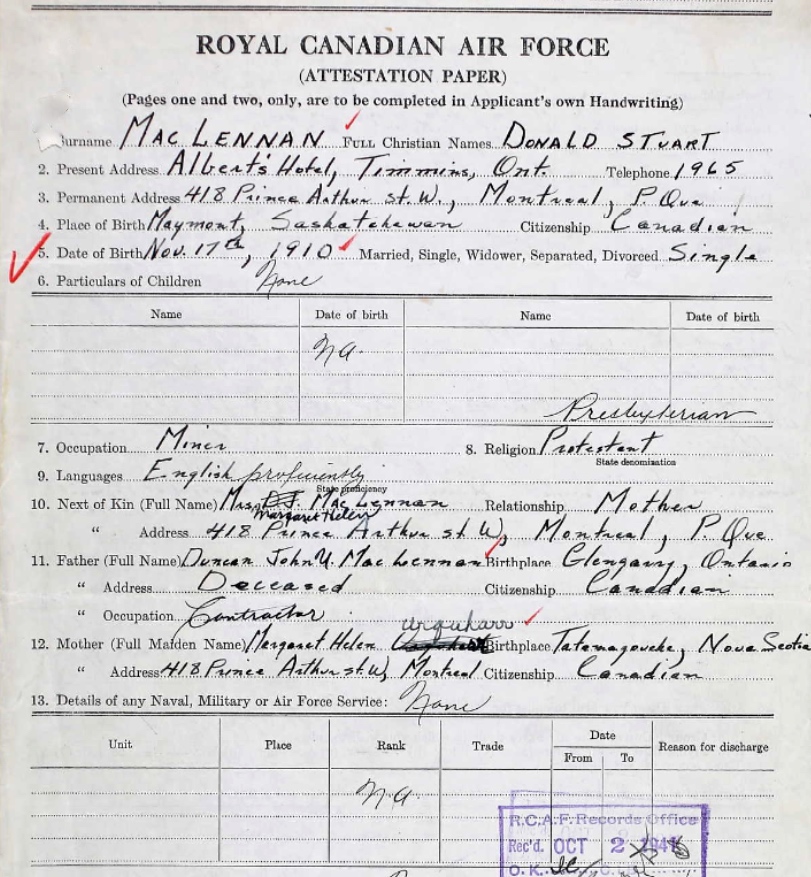 ROYAL CANADIAN AIR FORCE
(ATTESTATION PAPER)
(Pages one and two, only, are to be completed in Applicant's own Handwriting)
Surname MAC LENNAN FULL Christian Names DONALD STUART
2. Present Address Albert's Hotel, Timmins, Ont. Telephone 1965
3. Permanent Address 418 Prince Arthur St. W., Montreal, P. Que
4. Place of Birth Maymont, Saskatchewan Citizenship Canadian
5. Date of Birth Nov. 17th, 1910 Married, Single, Widower, Separated, Divorced Single
6. Particulars of Children None
Name Date of birth Name Date of birth
NA.
Presbyterian
7. Occupation Miner 8. Religion Protestant
State denomination
9. Languages English proficiently
State proficiency
10. Next of Kin (Full Name) Mrs. D.J. Mac Lennan Relationship Mother
Margaret Helen
" Address 418 Prince Arthur st. W, Montreal, P. Que
11. Father (Full Name) Duncan John Mac Lennan Birthplace Glengarry, Ontario
" Address Deceased Citizenship Canadian
" Occupation Contractor
Urquhart
12. Mother (Full Maiden Name) Margaret Helen Birthplace Tatamagouche, Nova Scotia
" Address 418 Prince Arthur st. W, Montreal Citizenship Canadian
13. Details of any Naval, Military or Air Force Service: None
Unit Place Rank Trade Date Reason for discharge
From To
N.A.
R.C.A.F. Records Office
Rec'd. OCT 2 1941
O.K.